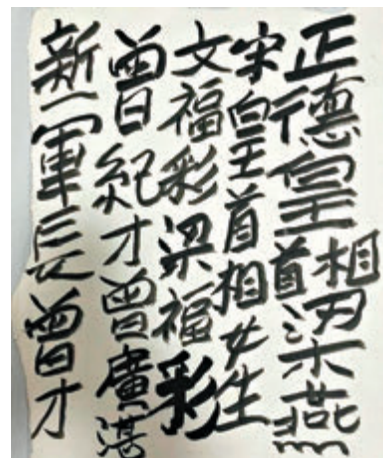 正德皇首相梁燕
宋皇首相女生
文福彩梁福彩
曾紀才曾廣湛
新一軍長曾才